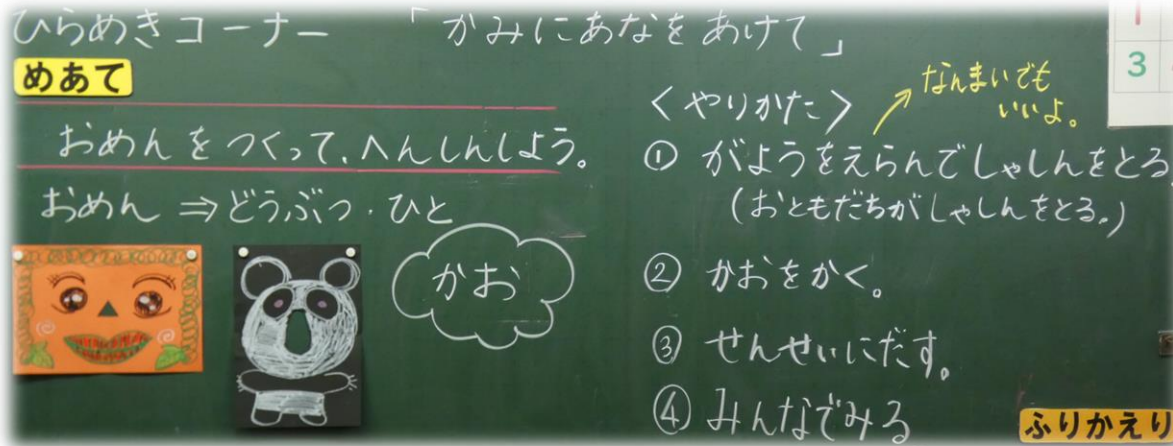 ひらめきコーナー 「かみにあなをあけて」
めあて
おめんをつくって、へんしんしよう。
おめん ⇒ どうぶつ・ひと
かお
〈やりかた〉
なんまいでも
いいよ。
① がようをえらんでしゃしんをとる
(おともだちがしゃしんをとる。)
② かおをかく。
③ せんせいにだす。
④ みんなでみる
ふりかえり
1
3